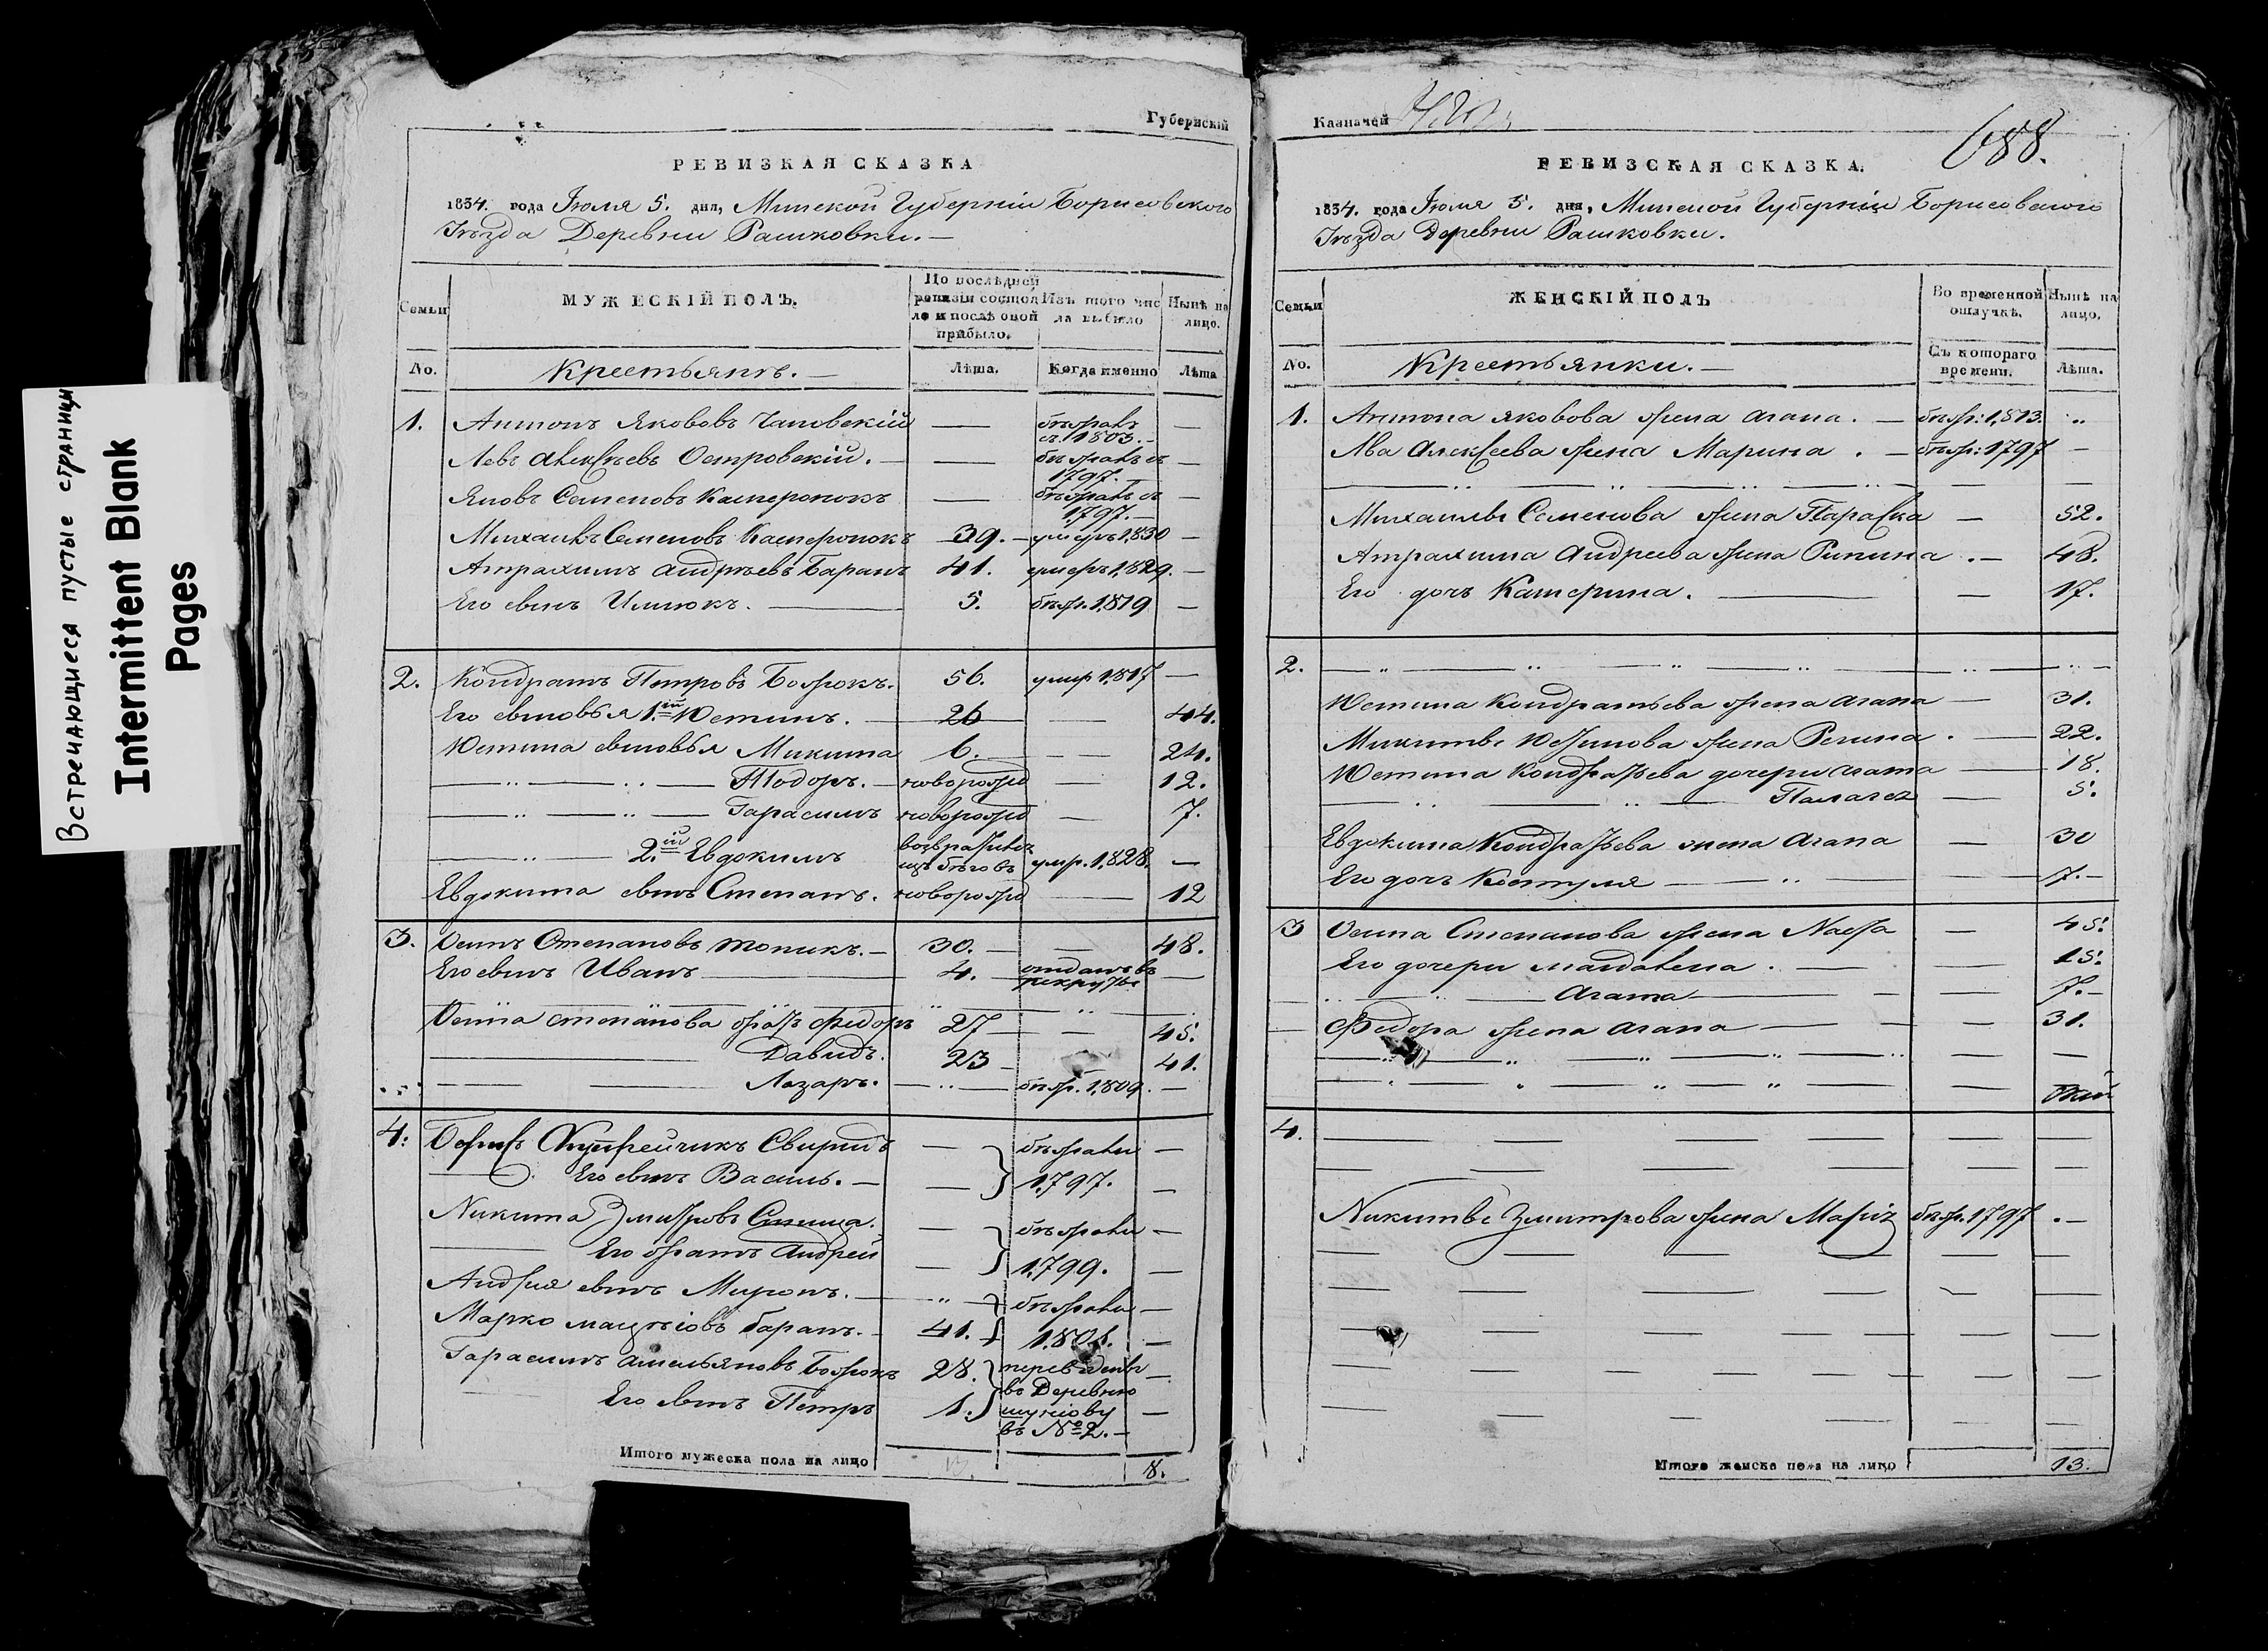 Встречающиеся пустые страницы
Intermittent Blank
Pages
Губернскій
РЕВИЗКАЯ СКАЗКА
1834. года Іюля 5. дня, Минской Губерніи Борисовского
Уѣзда Деревни Рашковки.—
Семьи
МУЖ ЕСКІЙ ПОЛЪ.
По послѣдней
ревизіи состоя
ло и послѣ оной
прибыло.
Изъ того чис
ла выбыло
Нынѣ на
лицо.
No.
Крестьянъ.—
Лѣта.
Когда именно
Лѣта
1. Антонъ Якововъ — бѣжалъ —
1803.—
Левъ Алексѣевъ Островскій. — бѣжалъ въ —
1797.—
Яковъ Семеновъ Касперонокъ — бѣжалъ въ —
1797.—
Михаилъ Семеновъ Касперонокъ 39. умеръ 1830 —
Атрахимъ Андрѣевъ Баранъ 41. умеръ 1829. —
Его сынъ 5. бѣж. 1819 —
2. Кондратъ Петровъ Божокъ. 56. умер 1817 —
Его сыновья 1.ый Юстинъ. — 26 — 44.
Юстина сыновья Микита 6. — 24.
Тодоръ. — новорожд — 12.
Гарасимъ новорожд — 7.
2.ій Евдокимъ возвратил
изъ бѣговъ умр. 1828. —
Евдокима сынъ Степанъ. новорожд — 12
3. Осипъ Степановъ Топикъ.— 30. — 48.
Его сынъ Иванъ 4. отданъ въ —
рекруты
Осипа Степанова братъ Федоръ 27 — 45.
Давидъ. 23 — 41.
Лазарь. — бѣж. 1809. —
4: Свиридъ — бѣжали —
Его сынъ Василь. — — 1797. —
Никита Змитровъ — бѣжали —
Его братъ Андрей — 1799. —
Андрея сынъ Миронъ. — бѣжали —
Марко Мацѣіовъ Баранъ. 41. —
Гарасимъ Амельяновъ Божокъ 28. переведены —
въ Деревню
Его сынъ Петръ 1. —
въ № 2.—
Итого мужеска пола на лицо 8.
Казначей
688.
РЕВИЗСКАЯ СКАЗКА.
1834. года Іюля 5. дня, Минской Губерніи Борисовского
Уѣзда Деревни Рашковки.
Семьи
ЖЕНСКІЙ ПОЛЪ
Во временной
отлучкѣ.
Нынѣ на
лицо.
No.
Крестьянки.—
Съ котораго
времени.
Лѣта.
1. Антона Яковова жена Агапа. — бѣж: 1813. „
Лва Алексѣева жена Марина. — бѣж: 1797 —
Михаилы Семенова жена Параска — 52.
Атрахима Андреева жена Рипина. — 48.
Его дочь Катерина. — 17.
2.
Юстина Кондратьева жена Агапа — 31.
Микиты Юстинова жена Регина. — 22.
Юстина Кондратьева дочери Агата — 18.
Палагея — 5.
Евдокима Кондратьева жена Агапа — 30
Его дочь Костуля — 7.—
3 Осипа Степанова жена Настя — 45.
Его дочери Магдалена. — 15.
Агата — 7.—
Федора жена Агапа — 31.
4.
Никиты Змитрова жена бѣж. 1797 . —
Итого женска пола на лицо 13.